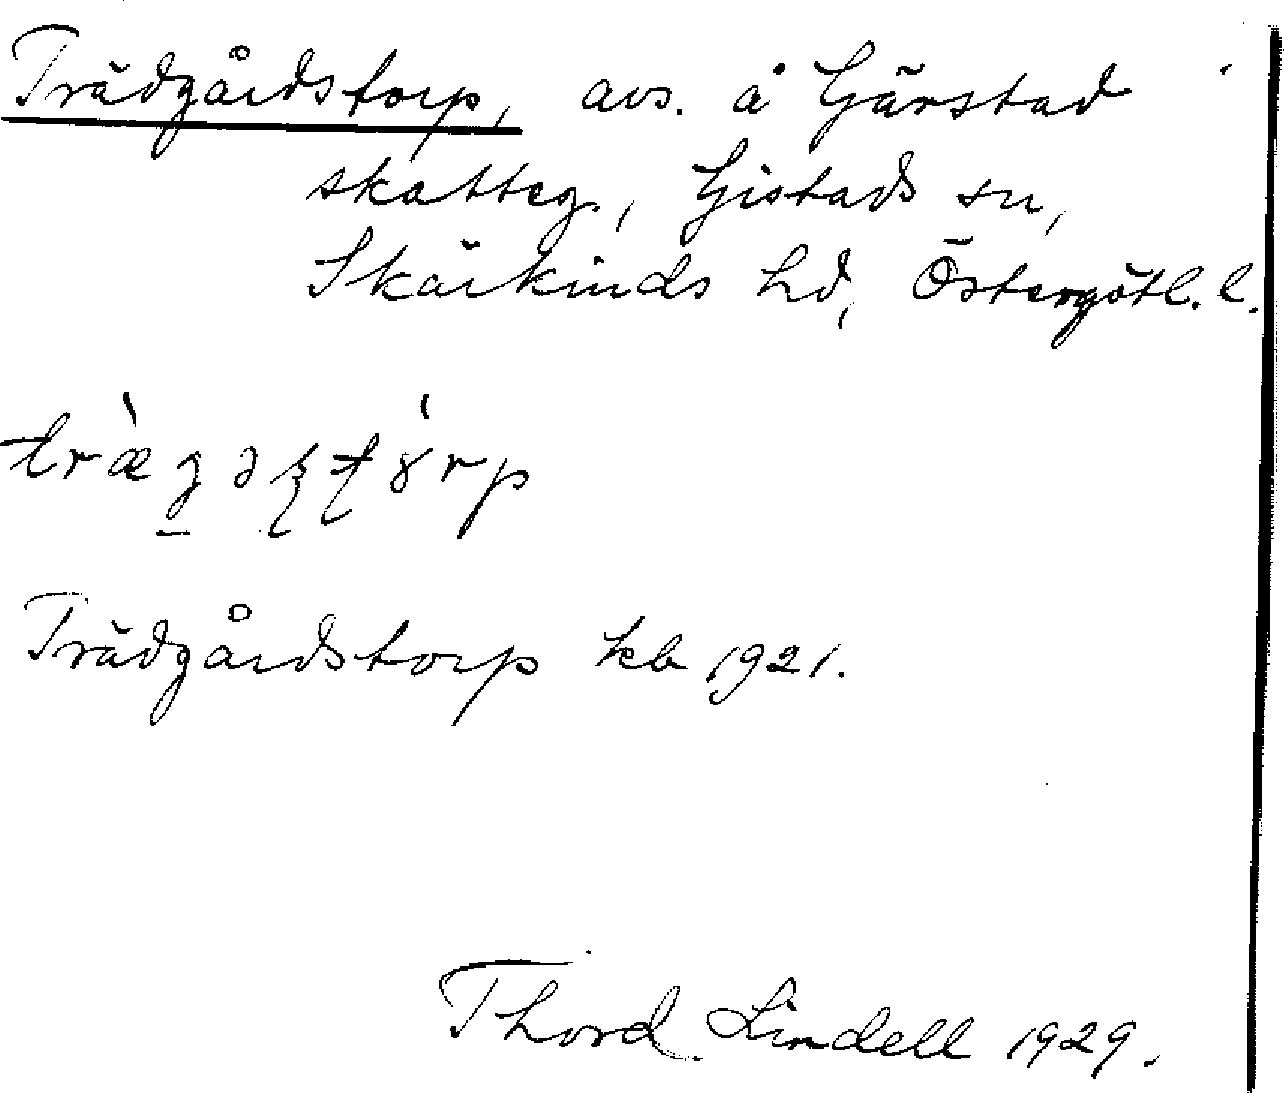 Trädgårdstorp, avs. å Gärstad
skatteg., Gistads sn,
Skärkinds hd, Östergötl. l.
træ̀gəʂʈɤ́rp
Trädgårdstorp kb 1921.
Thord Lindell 1929.